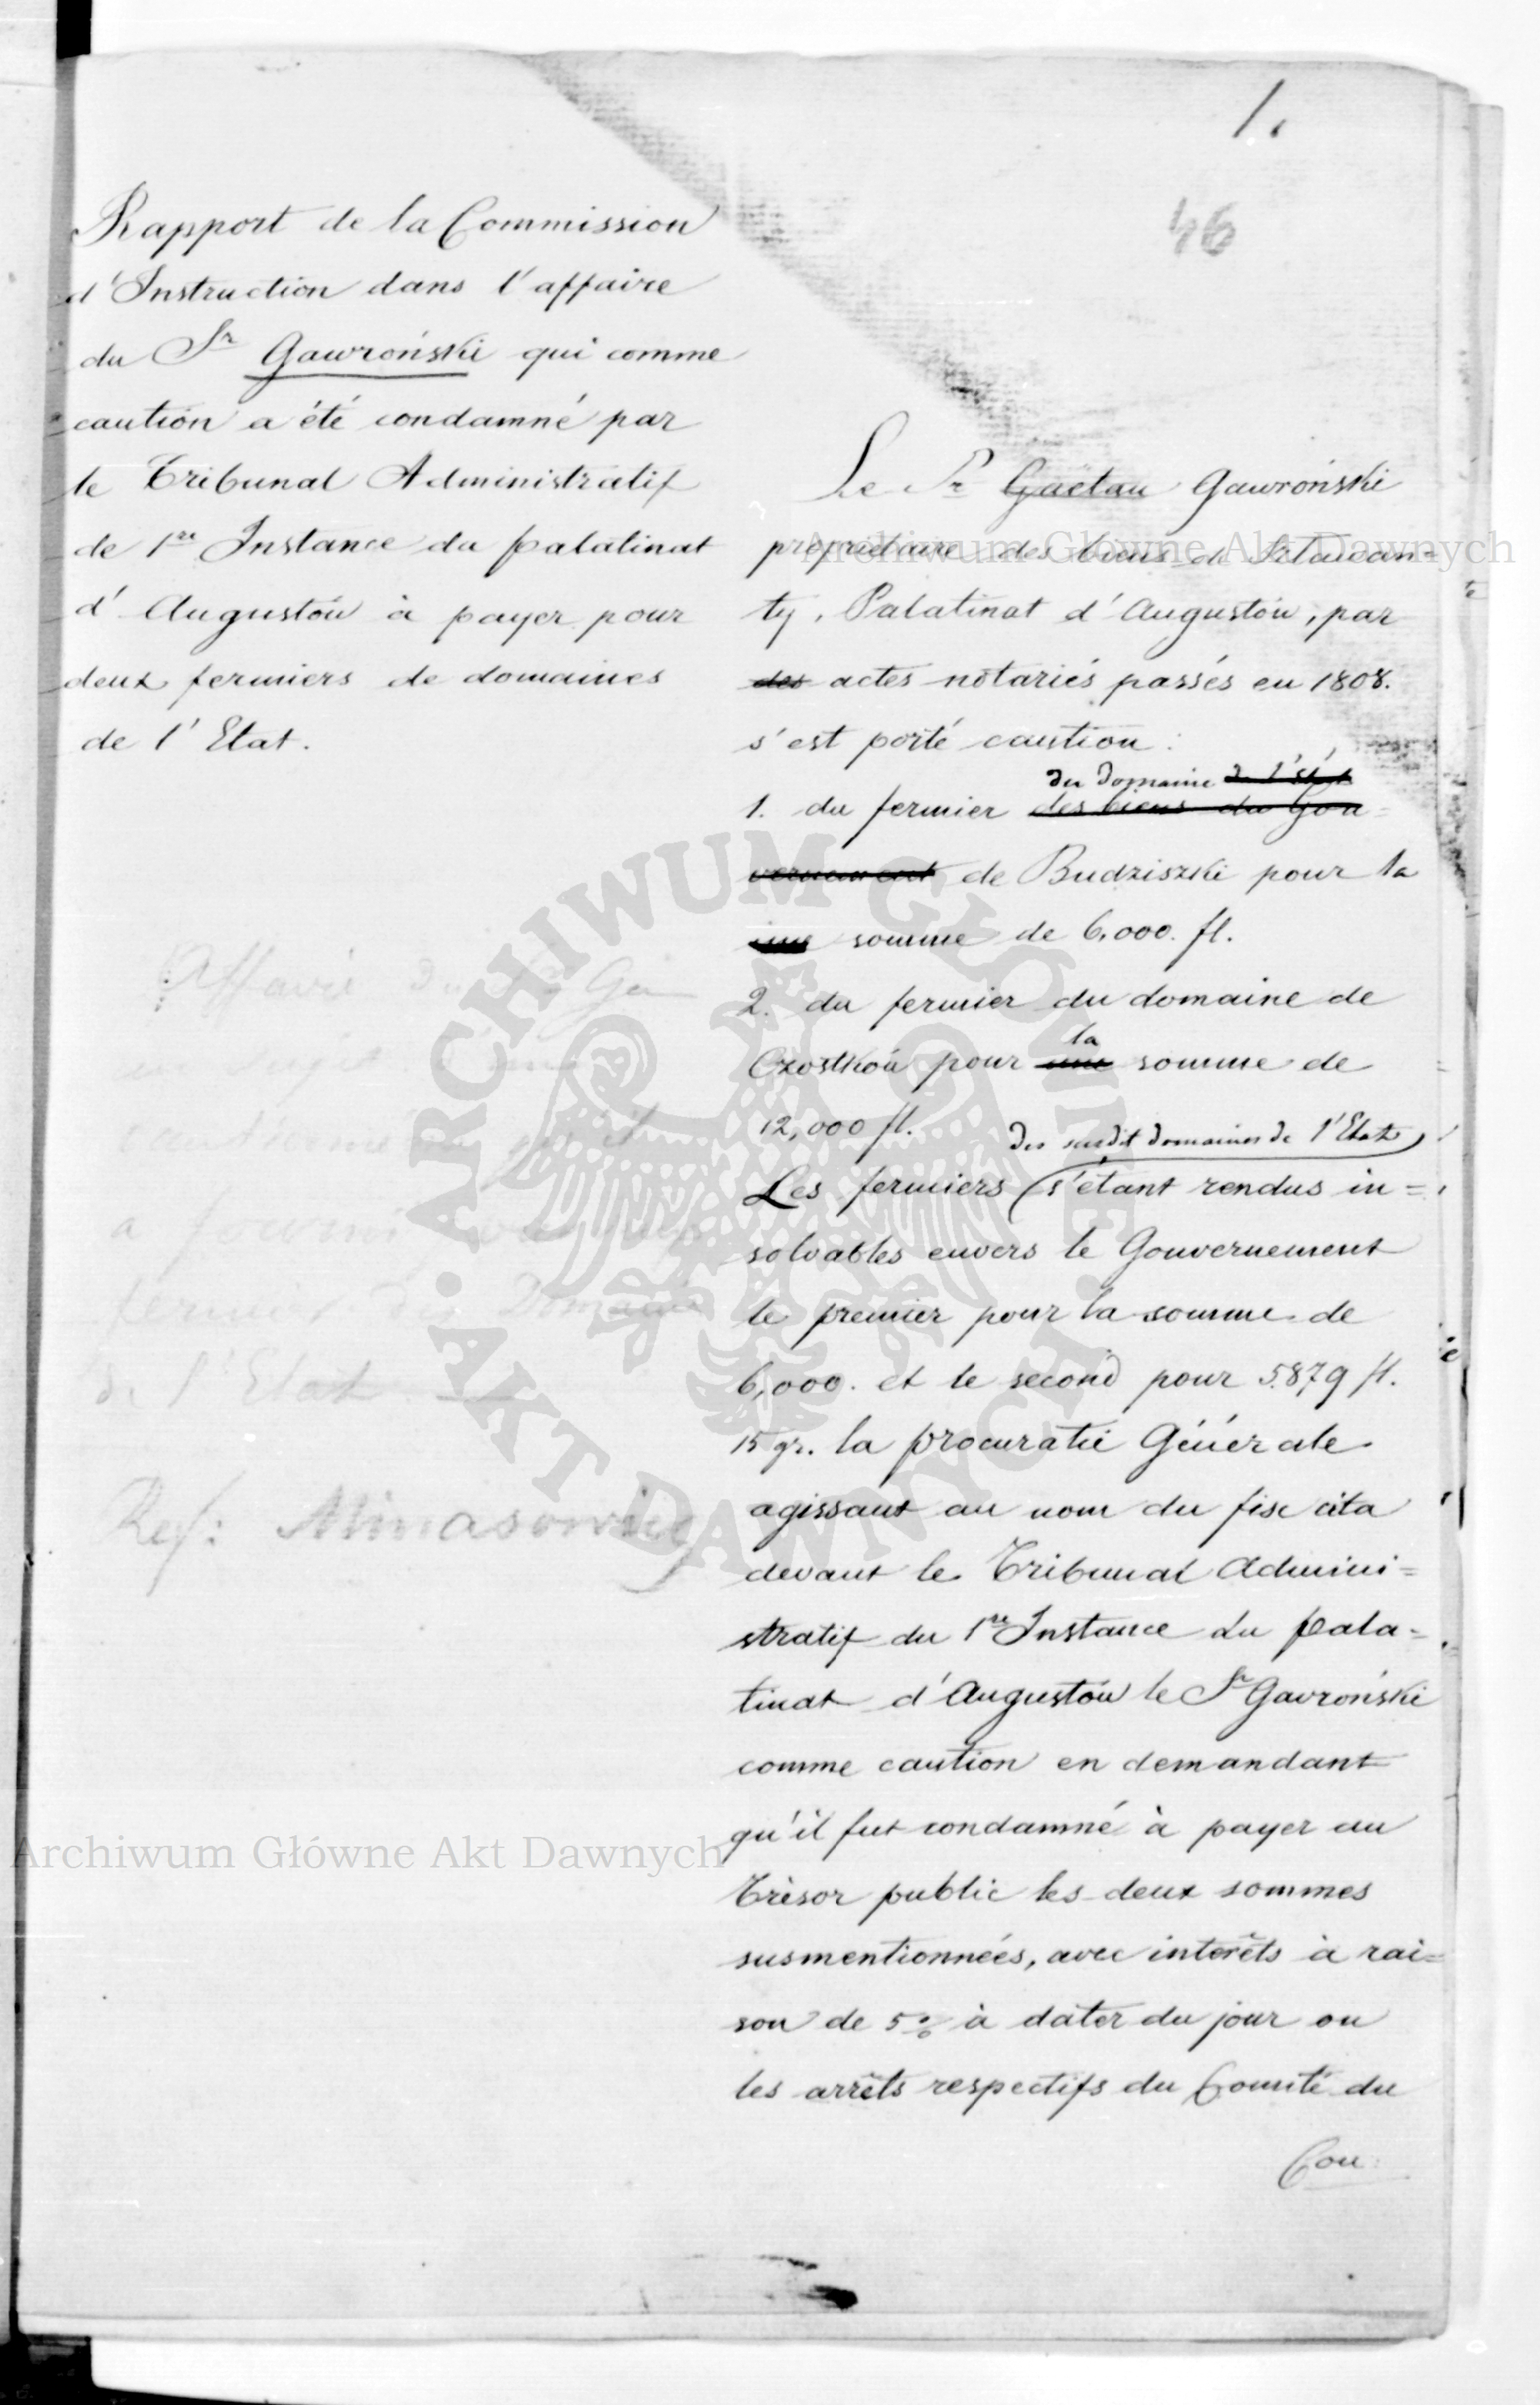 1.
46
Rapport de la Commission
d'Instruction dans l'affaire
du Sr Gawroński qui comme
caution a été condamné par
le Tribunal Administratif
de 1re Instance du palatinat
d'Augustów à payer pour
deux fermiers de domaines
de l'Etat.
Affaire du
de l'Etat
Ref: Minasowicz
Le Sr Gaëtan Gawroński
propriétaire des biens de
ty, Palatinat d'Augustów, par
des actes notariés passés en 1808.
s'est porté caution:
du domaine de l'Etat
1. du fermier des biens du Gou=
vernement de Budziszki pour la
une somme de 6,000. fl.
2. du fermier du domaine de
la
Czostków pour une somme de
12,000 fl.
des susdit domaines de l'Etat
Les fermiers (s'étant rendus in=
solvables envers le Gouvernement
le premier pour la somme de
6,000. et le second pour 5.879 fl.
15 gr. la procuratie Générale
agissant au nom du fisc cita
devant le Tribunal Admini=
stratif du 1re Instance du pala=
tinat d'Augustów le Sr Gavroński
comme caution en demandant
qu'il fut condamné à payer au
Trèsor public les deux sommes
susmentionnées, avec interêts à rai=
son de 5% à dater du jour ou
les arrêts respectifs du Comité du
Con
Archiwum Główne Akt Dawnych
Archiwum Główne Akt Dawnych
ARCHIWUM GŁÓWNE AKT DAWNYCH